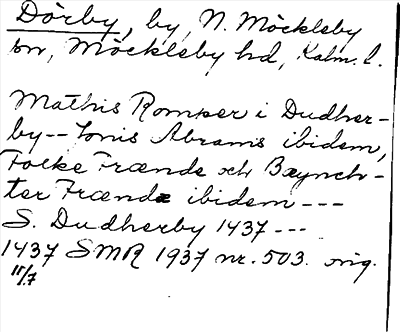 Dörby, by, N. Möckleby
sn, Möckleby hd, Kalm. l.
Mathis Romper i Dudher-
by -- Jonis Abrams ibidem,
Folke Frænde och Bæynch-
ter Frænde ibidem ---
S. Dudherby 1437 ---
1437 SMR 1937 nr. 503. orig.
11/7